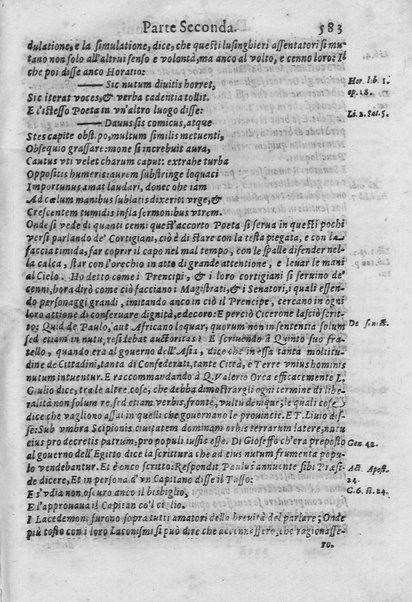 Parte Seconda. 583
dulatione, e la simulatione, dice, che questi lusinghieri assentatori si mu-
tano non solo all'altrui senso e volontà, ma anco al volto, e cenno loro: Il
che poi disse anco Horatio:
Hor. lib. 1.
ep. 18.
—— Sic nutum diuitis horret,
Sic iterat voces, & verba cadentia tollit.
E l'istesso Poeta in vn'altro luogo disse:
Li. 2. Sat. 5.
—— Dauus sis comicus, atque
Stes capite obstipo, multum similis metuenti,
Obsequio grassare: mone si increbuit aura,
Cautus vti velet charum caput: extrahe turba
Oppositis humeris: aurem substringe loquaci
Importunus amat laudari, donec ohe iam
Ad cœlum manibus sublatis dixerit: vrge, &
Crescentem tumidis infla sermonibus vtrem.
Onde si vede di quanti cenni quest'accorto Poeta si serua in questi pochi
versi parlando de' Cortigiani, ciò è di stare con la testa piegata, e con la
faccia timida, far coprir il capo nei mal tempo, con le spalle difender nel-
la calca, star con l'orecchio in atto di grande attentione, e leuar le mani
al Cielo. Ho detto come i Prencipi, & i loro cortigiani si seruino de'
cenni, hora dirò come ciò facciano i Magistrati, & i Senatori, i quali essen-
do personaggi grandi, imitando anco in ciò il Prencipe, cercano in ogni
loro attione di conseruare dignità, e decoro: E perciò Cicerone così scris-
De senect.
se: Quid de Paulo, aut Africano loquar, quorum non in sententia solum
sed etiam in nutu, residebat auctoritas? E scriuendo à Quinto suo fra-
tello, quando era al gouerno dell'Asia, dice che in essa tanta moltitu-
dine de Cittadini, tanta di Confederati, tante Città, e Terre vnius hominis
nutum intuentur. E raccommandando à Q. Valerio Orca efficacemente L.
Giulio dice, tra le altre cose, che debba dimostrargli ogni termine di libe-
ralità non solum re sed etiam verbis, fronte, vultu denique; le quali cose
dice che vagliono assai in quelli che gouernano le prouincie. E T. Liuio dis-
se: Sub vmbra Scipionis ciuitatem dominam orbis terrarum latere, nutu
eius pro decretis patrum, pro populi iussis esse. Di Gioseffo ch'era preposto
Gen. 42.
al gouerno dell'Egitto dice la scrittura che ad eius nutum frumenta popu-
lo vendebantur. Et è anco scritto: Respondit Paulus annuente sibi Præsi-
Act. Apost.
24.
de dicere, Et in persona d'vn Capitano disse il Tasso:
E s'vdia non oscuro anco il bisbiglio,
C. 6. st. 24.
E l'approuaua il Capitan co'l ciglio.
I Lacedemoni furono sopra tutti amatori della breuità del parlare; Onde
più tosto con i loro Laconismi si può dire che accennassero, che ragionasse-
ro.